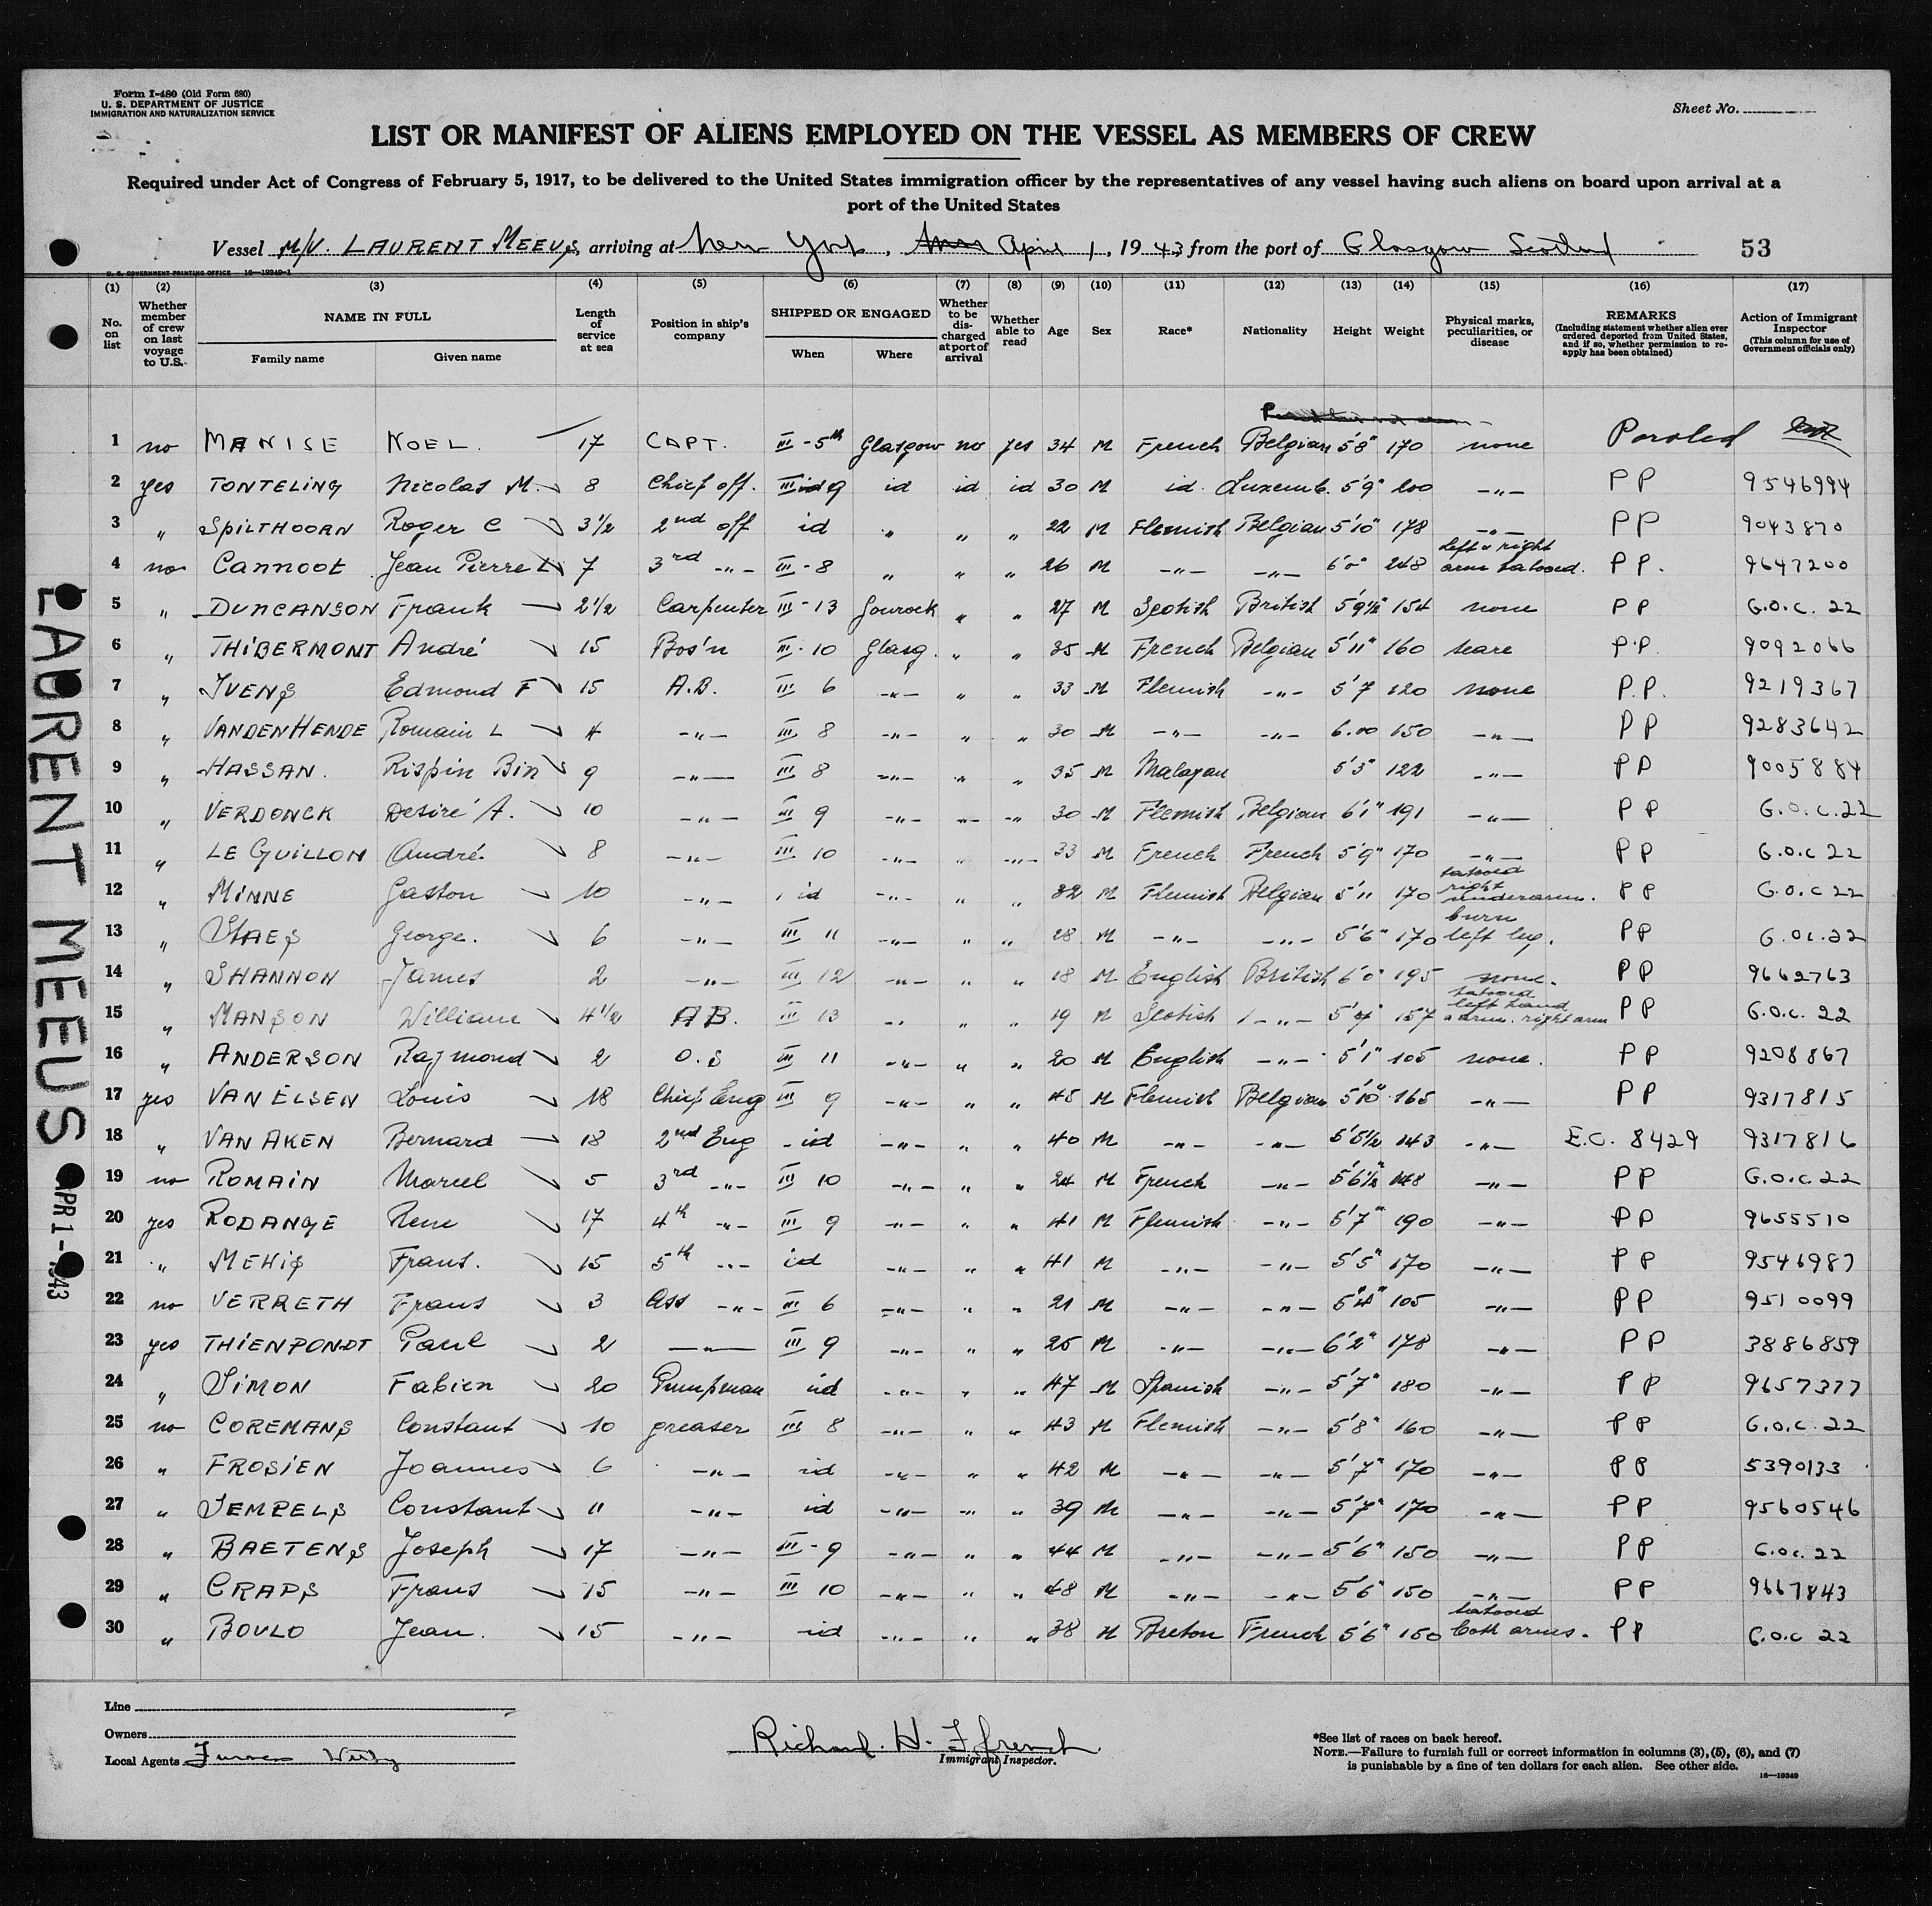 Form I-480 (Old Form 680)
U. S. DEPARTMENT OF JUSTICE
IMMIGRATION AND NATURALIZATION SERVICE
Sheet No.
LIST OR MANIFEST OF ALIENS EMPLOYED ON THE VESSEL AS MEMBERS OF CREW
Required under Act of Congress of February 5, 1917, to be delivered to the United States immigration officer by the representatives of any vessel having such aliens on board upon arrival at a
port of the United States
Vessel M/V. LAURENT MEEUS, arriving at New York, April 1, 1943, from the port of Glasgow Scotland 53
U. S. GOVERNMENT PRINTING OFFICE 16—19349-1
(1) (2) (3) (4) (5) (6) (7) (8) (9) (10) (11) (12) (13) (14) (15) (16) (17)
No. on list
Whether member of crew on last voyage to U.S.
NAME IN FULL
Family name
Given name
Length of service at sea
Position in ship's company
SHIPPED OR ENGAGED
When
Where
Whether to be discharged at port of arrival
Whether able to read
Age
Sex
Race*
Nationality
Height
Weight
Physical marks, peculiarities, or disease
REMARKS
(Including statement whether alien ever ordered deported from United States, and if so, whether permission to re-apply has been obtained)
Action of Immigrant Inspector
(This column for use of Government officials only)
1 no MANISE NOEL. 17 CAPT. III-5th Glasgow no yes 34 M French Belgian 5'8" 170 none Paroled
2 yes TONTELING Nicolas M. 8 Chief off. III 9 id id id 30 M id Luxemb. 5'9" 200 -"- PP 9546994
3 " SPILTHOORN Roger C 3½ 2nd off id " " " 22 M Flemish Belgian 5'10" 178 -"- PP 9043870
4 no Cannoot Jean Pierre L 7 3rd -"- III-8 " " " 26 M -"- -"- 6'0" 248 left & right arm tatooed. PP. 9647200
5 " DUNCANSON Frank 2½ Carpenter III-13 Gourock " " 27 M Scotish British 5'9½" 154 none PP G.O.C. 22
6 " THIBERMONT André 15 Bos'n III-10 Glasg. " " 35 M French Belgian 5'11" 160 scare P.P. 9092066
7 " IVENS Edmond F 15 A.B. III 6 -"- " " 33 M Flemish -"- 5'7 120 none P.P. 9219367
8 " VANDENHENDE Romain L 4 -"- III 8 -"- " " 30 M -"- -"- 6.00 150 -"- PP 9283642
9 " HASSAN. Rispin Bin 9 -"- III 8 -"- " " 35 M Malayan 5'3" 122 -"- PP 9005884
10 " VERDONCK Desiré A. 10 -"- III 9 -"- -"- -"- 30 M Flemish Belgian 6'1" 191 -"- PP G.O.C.22
11 " LE GUILLON André. 8 -"- III 10 -"- " -"- 33 M French French 5'9" 170 -"- PP G.O.C 22
12 " MINNE Gaston 10 -"- id -"- " " 32 M Flemish Belgian 5'11 170 tatooed right underarm. PP G.O.C 22
13 " STAES George. 6 -"- III 11 -"- " " 28 M -"- -"- 5'6" 170 burn left leg. PP G.OC.22
14 " SHANNON James 2 -"- III 12 -"- " " 18 M English British 6'0" 195 none. PP 9662763
15 " MANSON William 4½ AB. III 13 -"- " " 19 M Scotish -"- 5'4" 157 tatooed left hand & arm. right arm PP G.O.C. 22
16 " ANDERSON Raymond 2 O.S III 11 -"- " " 20 M English -"- 5'1" 105 none. PP 9208867
17 yes VAN ELSEN Louis 18 Chief Eng III 9 -"- " " 45 M Flemish Belgian 5'10" 165 -"- PP 9317815
18 " VAN AKEN Bernard 18 2nd Eng id -"- " " 40 M -"- -"- 5'5½ 143 -"- E.C. 8429 9317816
19 no ROMAIN Marcel 5 3rd -"- III 10 -"- " " 24 M French -"- 5'6½" 148 -"- PP G.O.C 22
20 yes RODANGE Rene 17 4th -"- III 9 -"- " " 41 M Flemish -"- 5'7" 190 -"- PP 9655510
21 " MEHIS Frans. 15 5th -"- id -"- " " 41 M -"- -"- 5'5" 170 -"- PP 9546987
22 no VERRETH Frans 3 Ass -"- III 6 -"- " " 21 M -"- -"- 5'4" 105 -"- PP 9510099
23 yes THIENPONDT Paul 2 -"- III 9 -"- " " 25 M -"- -"- 6'2" 178 -"- PP 3886859
24 " SIMON Fabien 20 Pumpman id -"- " " 47 M Spanish -"- 5'7" 180 -"- PP 9657377
25 no COREMANS Constant 10 greaser III 8 -"- " " 43 M Flemish -"- 5'8" 160 -"- PP G.O.C. 22
26 " FROSIEN Joannes 6 -"- id -"- " " 42 M -"- -"- 5'7" 170 -"- PP 5390133
27 " TEMPELS Constant 11 -"- id -"- -"- " 39 M -"- -"- 5'7" 170 -"- PP 9560546
28 " BAETENS Joseph 17 -"- III-9 -"- " " 44 M -"- -"- 5'6" 150 -"- PP G.OC. 22
29 " CRAPS Frans 15 -"- III 10 -"- " " 48 M -"- -"- 5'6" 150 -"- PP 9667843
30 " BOULO Jean. 15 -"- id -"- " " 38 M Breton French 5'6" 150 tatooed both arms. PP G.O.C 22
LAURENT MEEUS
APR 1 - 1943
Line
Owners
Local Agents Furness Withy
Richard. H. Ffrench.
Immigrant Inspector.
*See list of races on back hereof.
NOTE.—Failure to furnish full or correct information in columns (3), (5), (6), and (7)
is punishable by a fine of ten dollars for each alien. See other side.
16—19349